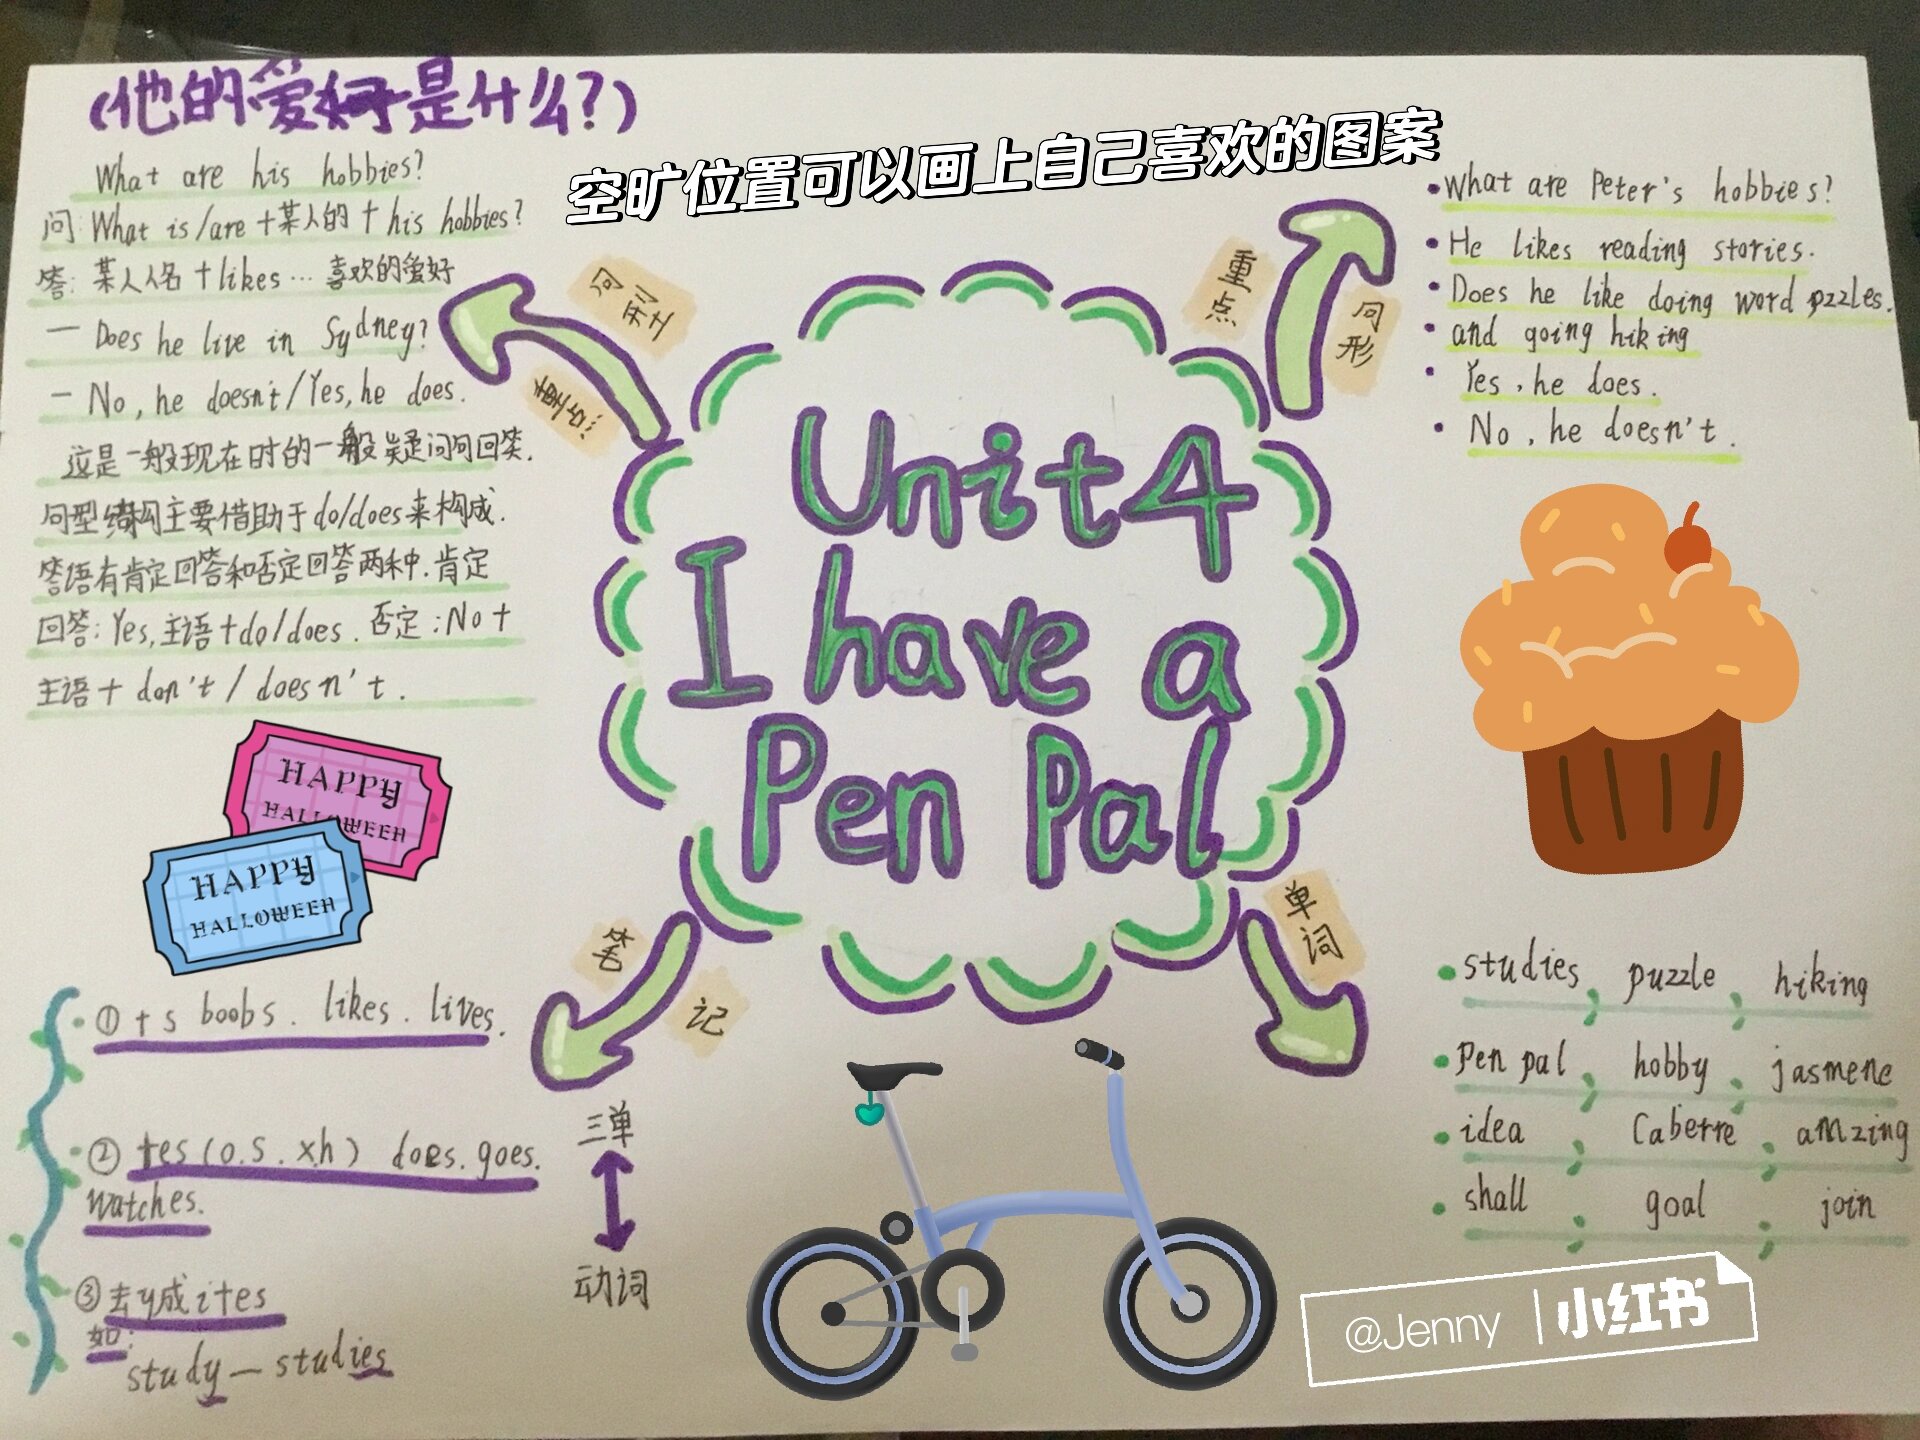 (他的爱好是什么?)
空旷位置可以画上自己喜欢的图案
What are his hobbies?
问: What is/are +某人的 + his hobbies?
答: 某人人名 + likes … 喜欢的爱好
— Does he live in Sydney?
— No, he doesn't / Yes, he does.
这是一般现在时的一般疑问句回答.
句型结构主要借助于do/does来构成.
答语有肯定回答和否定回答两种.肯定
回答: Yes,主语+do/does. 否定:No+
主语+ don't / doesn't.
句型
重点
重点
句形
•What are Peter's hobbies?
•He likes reading stories.
•Does he like doing word pzzles.
•and going hiking
•Yes, he does.
•No, he doesn't.
Unit4
I have a
Pen Pal
HAPPY
HALLOWEEN
HAPPY
HALLOWEEN
答记
单词
① +s boobs. likes. lives.
② +es (o.s. xh) does. goes.
watches.
③去y成i+es
如:
study — studies
三单
动词
•studies, puzzle, hiking
•Pen pal, hobby, jasmene
•idea, Caberre, amzing
•shall, goal, join
@Jenny | 小红书